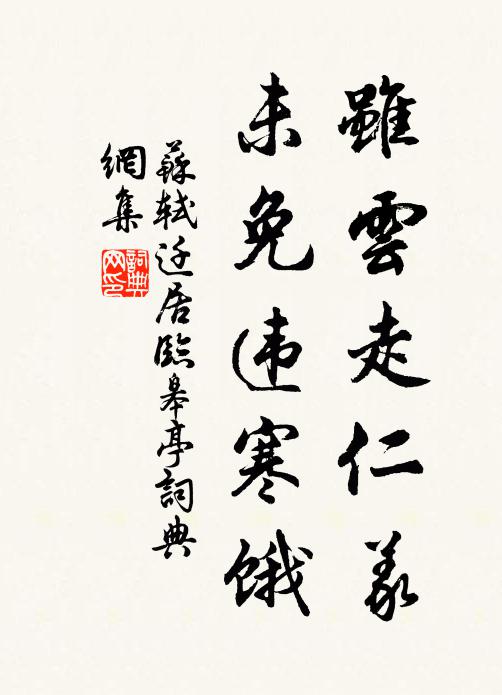 雖雲走仁義
未免违寒餓
蘇軾迁居臨皋亭詞典
網集
詞典
网印